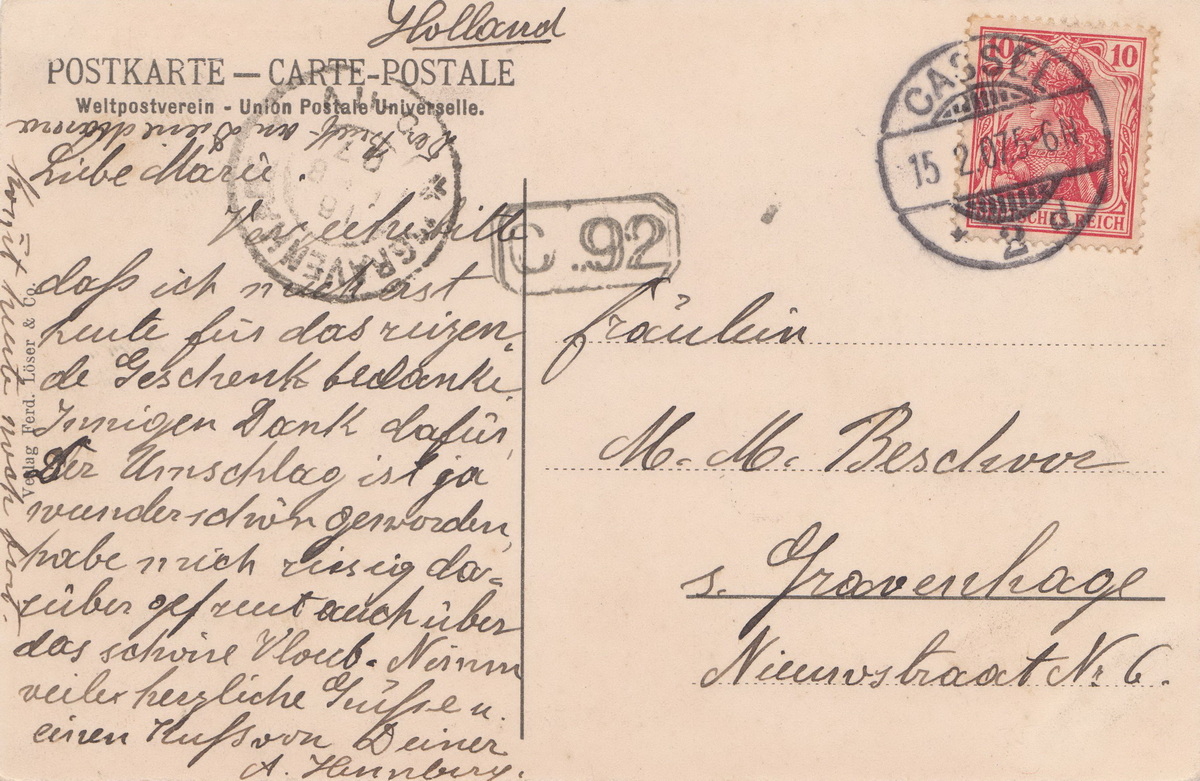 Holland
POSTKARTE — CARTE-POSTALE
Weltpostverein - Union Postale Universelle.
Liebe Marie.
daß ich mich erst
heute für das reizen-
de Geschenk bedanke.
Innigen Dank dafür,
Der Umschlag ist ja
wunderschön geworden,
habe mich riesig da-
rüber gefreut auch über
das schöne
vielen herzliche Grüße u.
einen Kuß von Deiner
A. Hennberg.
Verlag Ferd. Löser & Co.
'S GRAVENHAGE
C.92
CASSEL
15.2.07.5-6N
* 2 d
10 10
DEUTSCHES REICH
Fräulein
M. M. Beschoor
s. Gravenhage
Nieuwstraat Nr. 6.